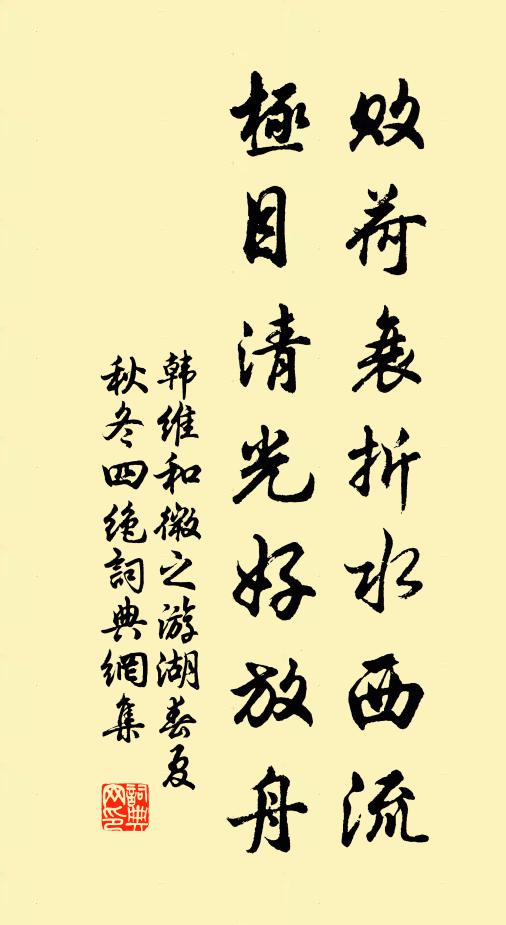 败荷衰折水西流
極目清光好放舟
韩維和微之游湖春夏
秋冬四绝詞典網集
詞典
网印